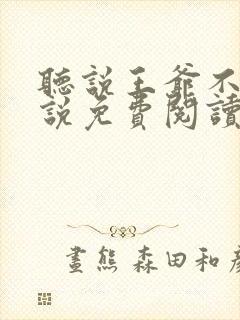 聽說王爺不
說免費閱讀
畫熊 森田和彥